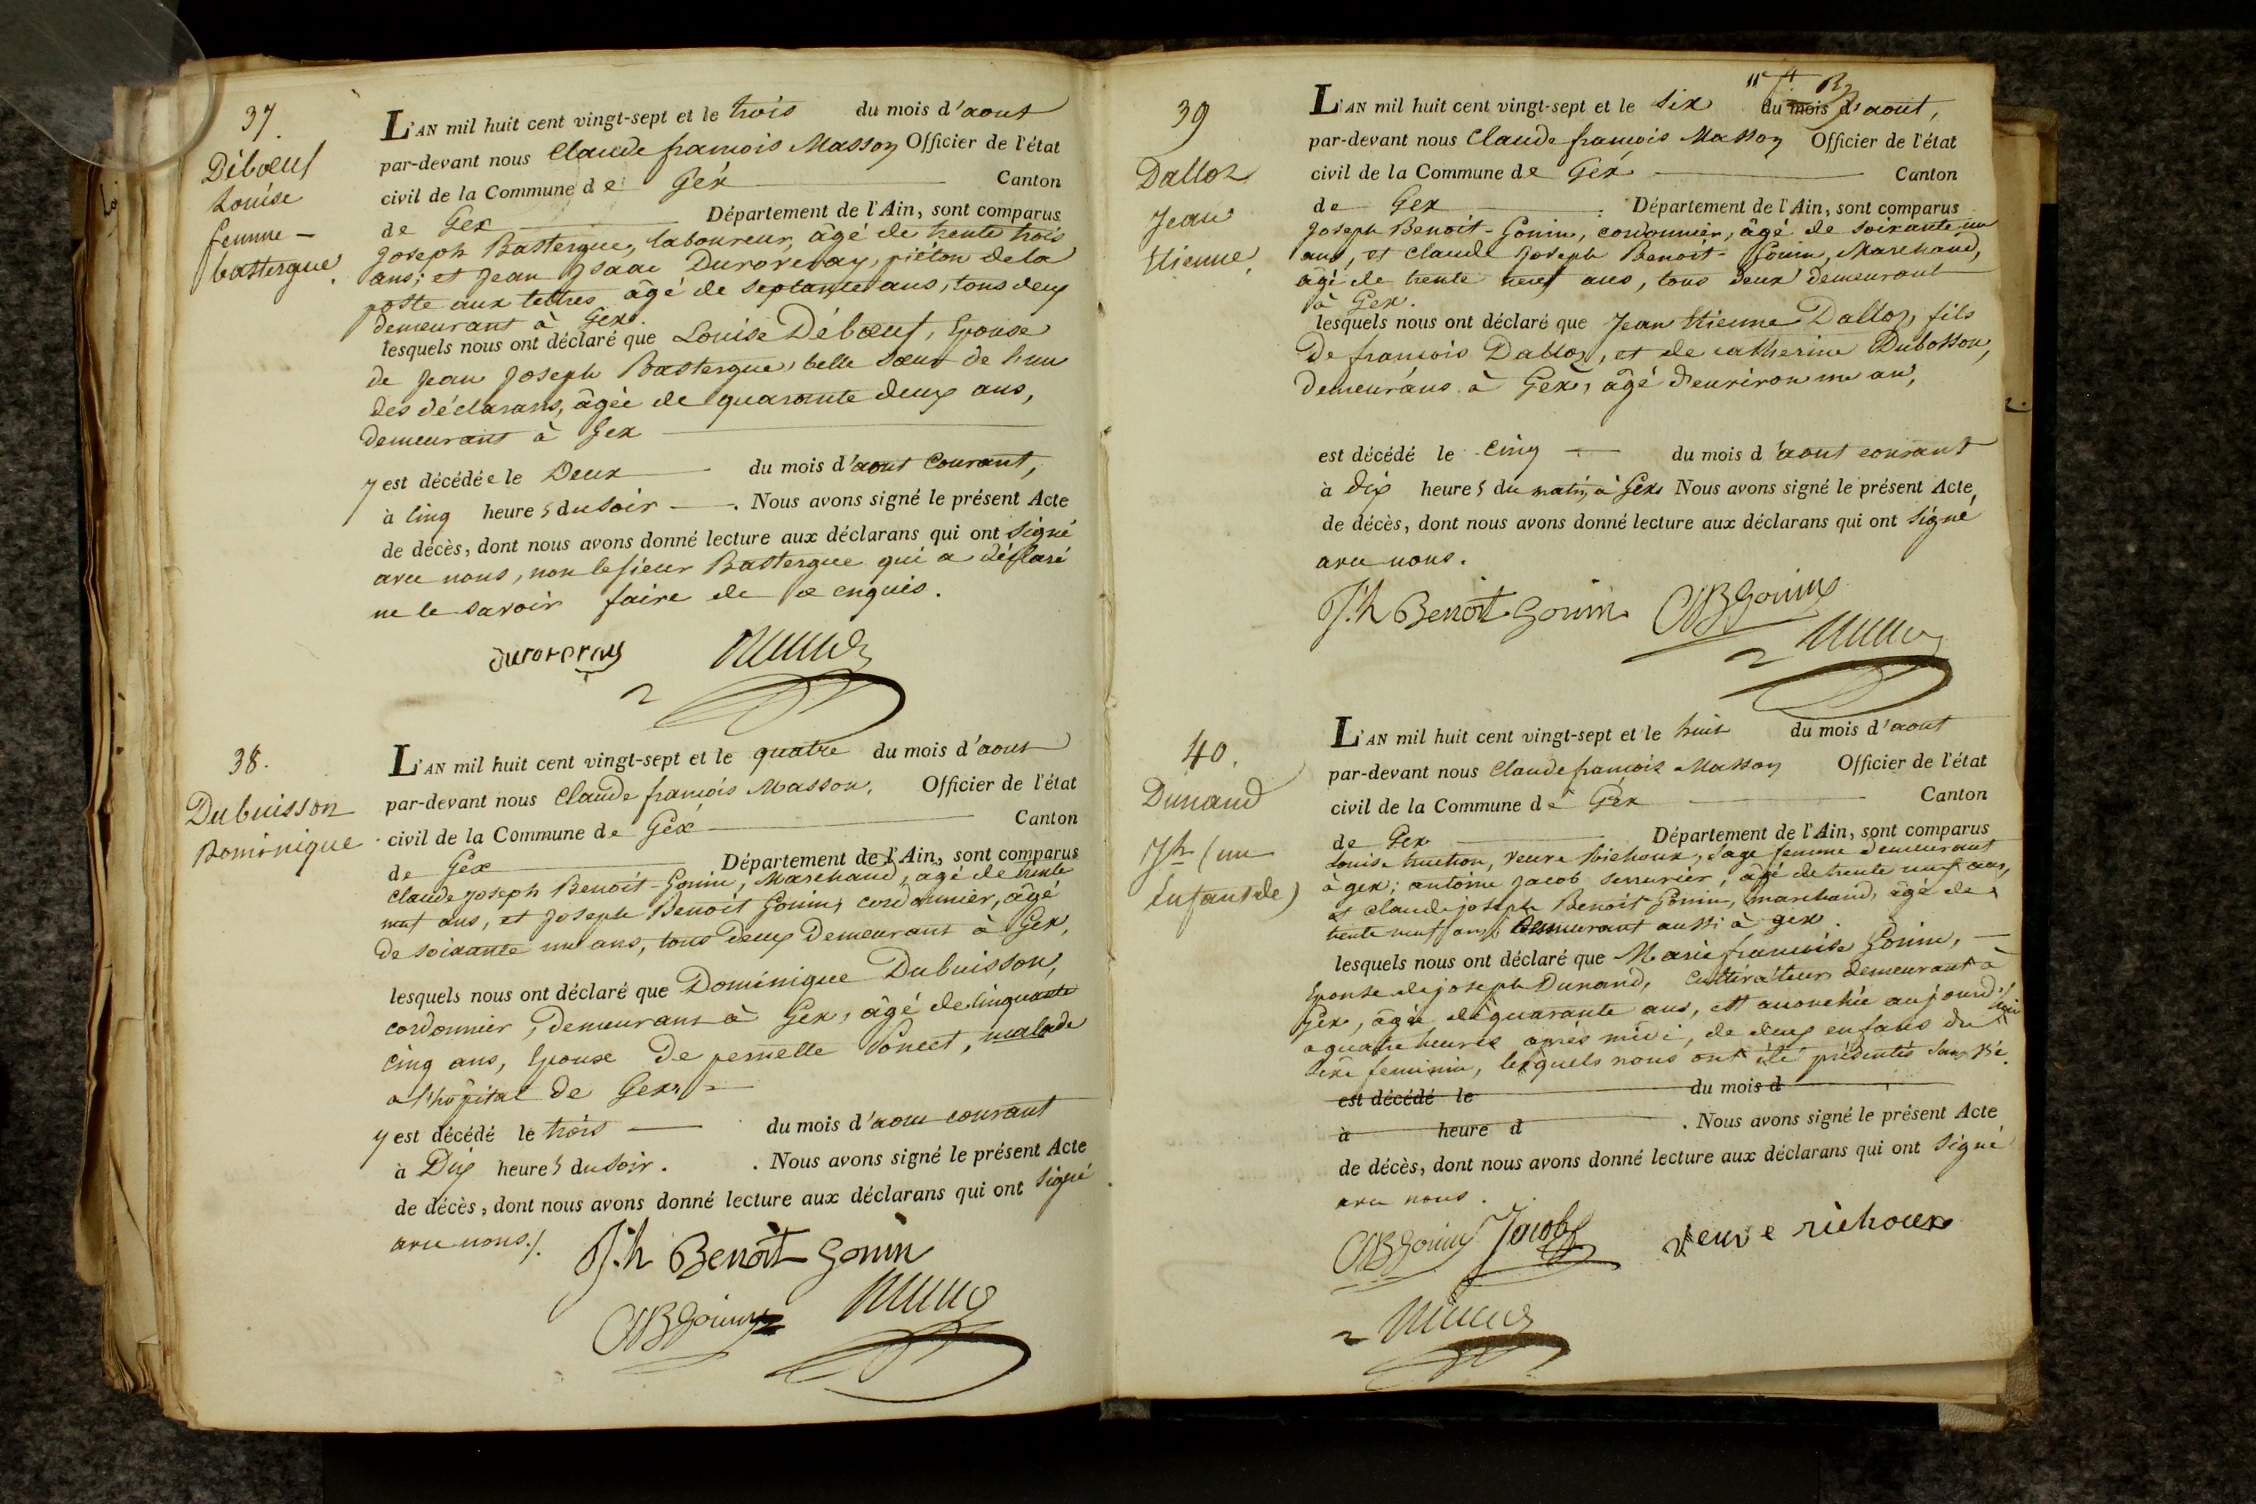 37.
Débœuf
Louise
femme -
bastergue.
L'AN mil huit cent vingt-sept et le trois du mois d'aout
par-devant nous Claude francois Masson Officier de l'état
civil de la Commune de Gex Canton
de Gex Département de l'Ain, sont comparus
Joseph Bastergue, laboureur, âgé de trente trois
ans; et Jean Isaac Duroveray, piéton de la
poste aux lettres âgé de septante ans, tous deux
demeurant à Gex.
lesquels nous ont déclaré que Louise Débœuf, Epouse
de Jean Joseph Bastergue, belle sœur de l'un
des déclarans, âgée de quarante deux ans,
demeurant à Gex
y est décédée le Deux du mois d'aout Courant,
à Cinq heures du soir . Nous avons signé le présent Acte
de décès, dont nous avons donné lecture aux déclarans qui ont signé
avec nous, non le sieur Bastergue qui a déclaré
ne le savoir faire de ce enquis.
duroveray
38.
Dubuisson
Dominique
L'AN mil huit cent vingt-sept et le quatre du mois d'aout
par-devant nous Claude francois Masson, Officier de l'état
civil de la Commune de Gex Canton
de Gex Département de l'Ain, sont comparus
Claude Joseph Benoit-Gonin, Marchand, agé de trente
neuf ans, et Joseph Benoit Gonin, cordonnier, âgé
de soixante un ans, tous deux demeurant à Gex,
lesquels nous ont déclaré que Dominique Dubuisson,
cordonnier, demeurant à Gex, âgé de cinquante
cinq ans, Epoux De pernette Poncet, malade
a l'hôpital de Gex,
y est décédé le trois du mois d'aout courant
à Dix heures du soir. . Nous avons signé le présent Acte
de décès, dont nous avons donné lecture aux déclarans qui ont signé
avec nous./.
J.h Benoit Gonin
CJBGonin
39
Dalloz
Jean
Etienne,
L'AN mil huit cent vingt-sept et le six du mois d'aout,
par-devant nous Claude francois Masson Officier de l'état
civil de la Commune de Gex Canton
de Gex Département de l'Ain, sont comparus
Joseph Benoit-Gonin, cordonnier, âgé de soixante un
ans, et Claude Joseph Benoit-Gonin, Marchand,
âgé de trente neuf ans, tous deux demeurant
à Gex.
lesquels nous ont déclaré que Jean Etienne Dalloz, fils
De francois Dalloz, et de catherine Dubosson,
Demeurans à Gex, âgé d'environ un an,
est décédé le cinq du mois d'aout courant
à dix heures du matin, à Gex Nous avons signé le présent Acte
de décès, dont nous avons donné lecture aux déclarans qui ont signé
avec nous.
J.h Benoit Gonin CJBGonin
40.
Dunand
Jh (un
Enfant de)
L'AN mil huit cent vingt-sept et le huit du mois d'aout
par-devant nous Claude francois Masson Officier de l'état
civil de la Commune de Gex Canton
de Gex Département de l'Ain, sont comparus
Louise veuve sage femme demeurant
à gex; antoine Jacob serrurier, âgé de trente neuf ans,
et Claude joseph Benoit Gonin, marchand, âgé de
trente neuf ans, demeurant aussi à gex.
lesquels nous ont déclaré que Marie francoise Gonin,
Epouse de joseph Dunand, Cultivateur demeurant à
Gex, âgée de quarante ans, est accouchée aujourd'hui
a quatre heures après midi, de deux enfans du
sexe feminin, lesquels nous ont été présentés sans vie.
est décédé le du mois d
à heure d . Nous avons signé le présent Acte
de décès, dont nous avons donné lecture aux déclarans qui ont signé
avec nous.
CJBGonin Jacob veuve richoux